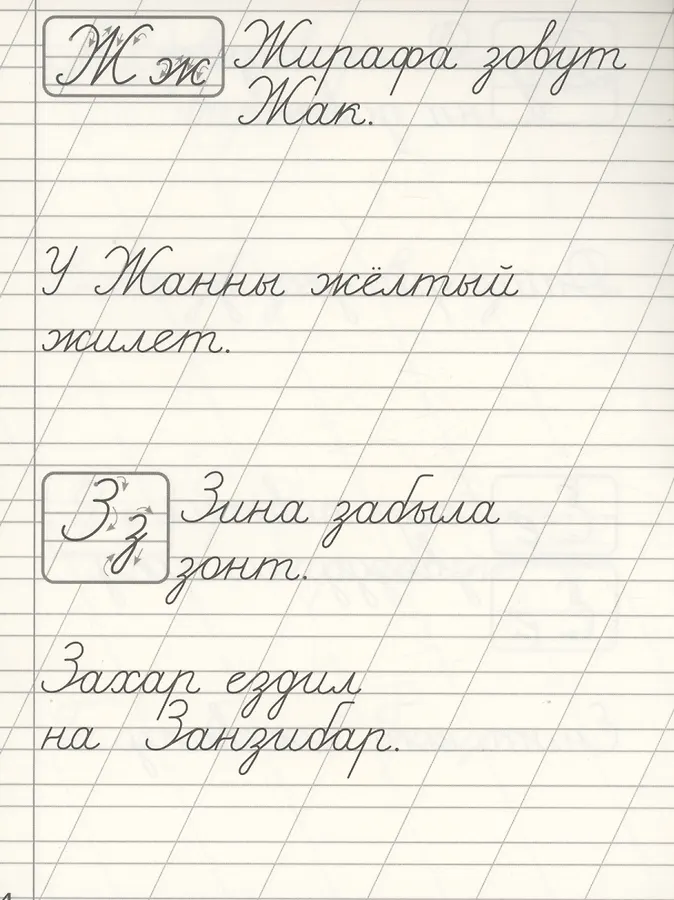 Ж ж Жирафа зовут
Жак.
У Жанны жёлтый
жилет.
З з Зина забыла
зонт.
Захар ездил
на Занзибар.
4